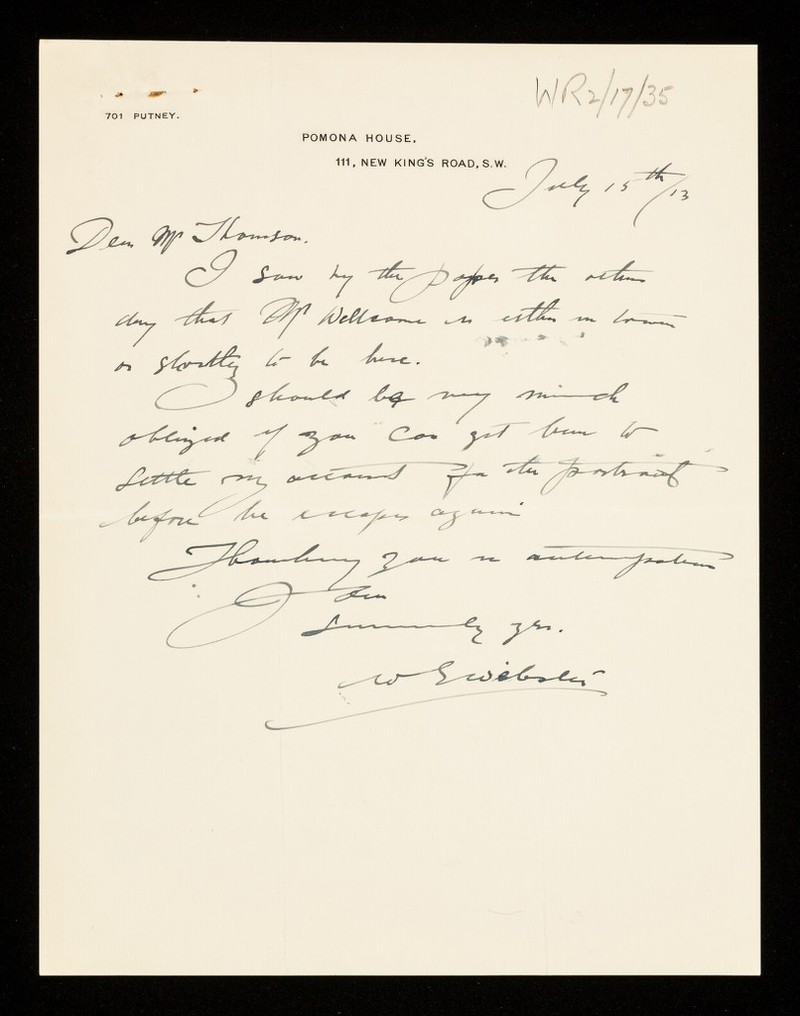 WR2/17/35
701 PUTNEY.
POMONA HOUSE,
111, NEW KING'S ROAD, S.W.
July 15th/13
Dear Mr Thomson.
I saw by the papers the other
day that Mr Wellcome is either in town
or shortly to be here.
I should be very much
obliged if you can get him to
settle my account for the portrait
before he escapes again
Thanking you in anticipation
I am
Sincerely yrs.
W G Webster